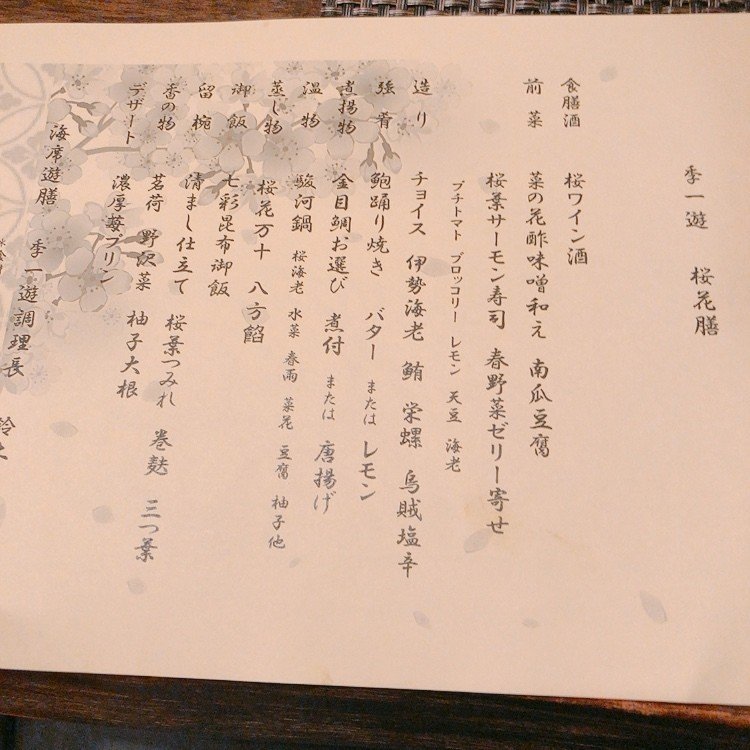 季一遊　桜花膳
食膳酒　桜ワイン酒
前菜　菜の花酢味噌和え　南瓜豆腐
桜葉サーモン寿司　春野菜ゼリー寄せ
プチトマト　ブロッコリー　レモン　天豆　海老
造り　チョイス　伊勢海老　鮪　栄螺　烏賊塩辛
強肴　鮑踊り焼き　バター　または　レモン
煮揚物　金目鯛お選び　煮付　または　唐揚げ
温物　駿河鍋　桜海老　水菜　春雨　菜花　豆腐　柚子他
蒸し物　桜花万十　八方餡
御飯　七彩昆布御飯
留椀　清まし仕立て　桜葉つみれ　巻麩　三つ葉
香の物　茗荷　野沢菜　柚子大根
デザート　濃厚苺プリン
海席遊膳　季一遊調理長